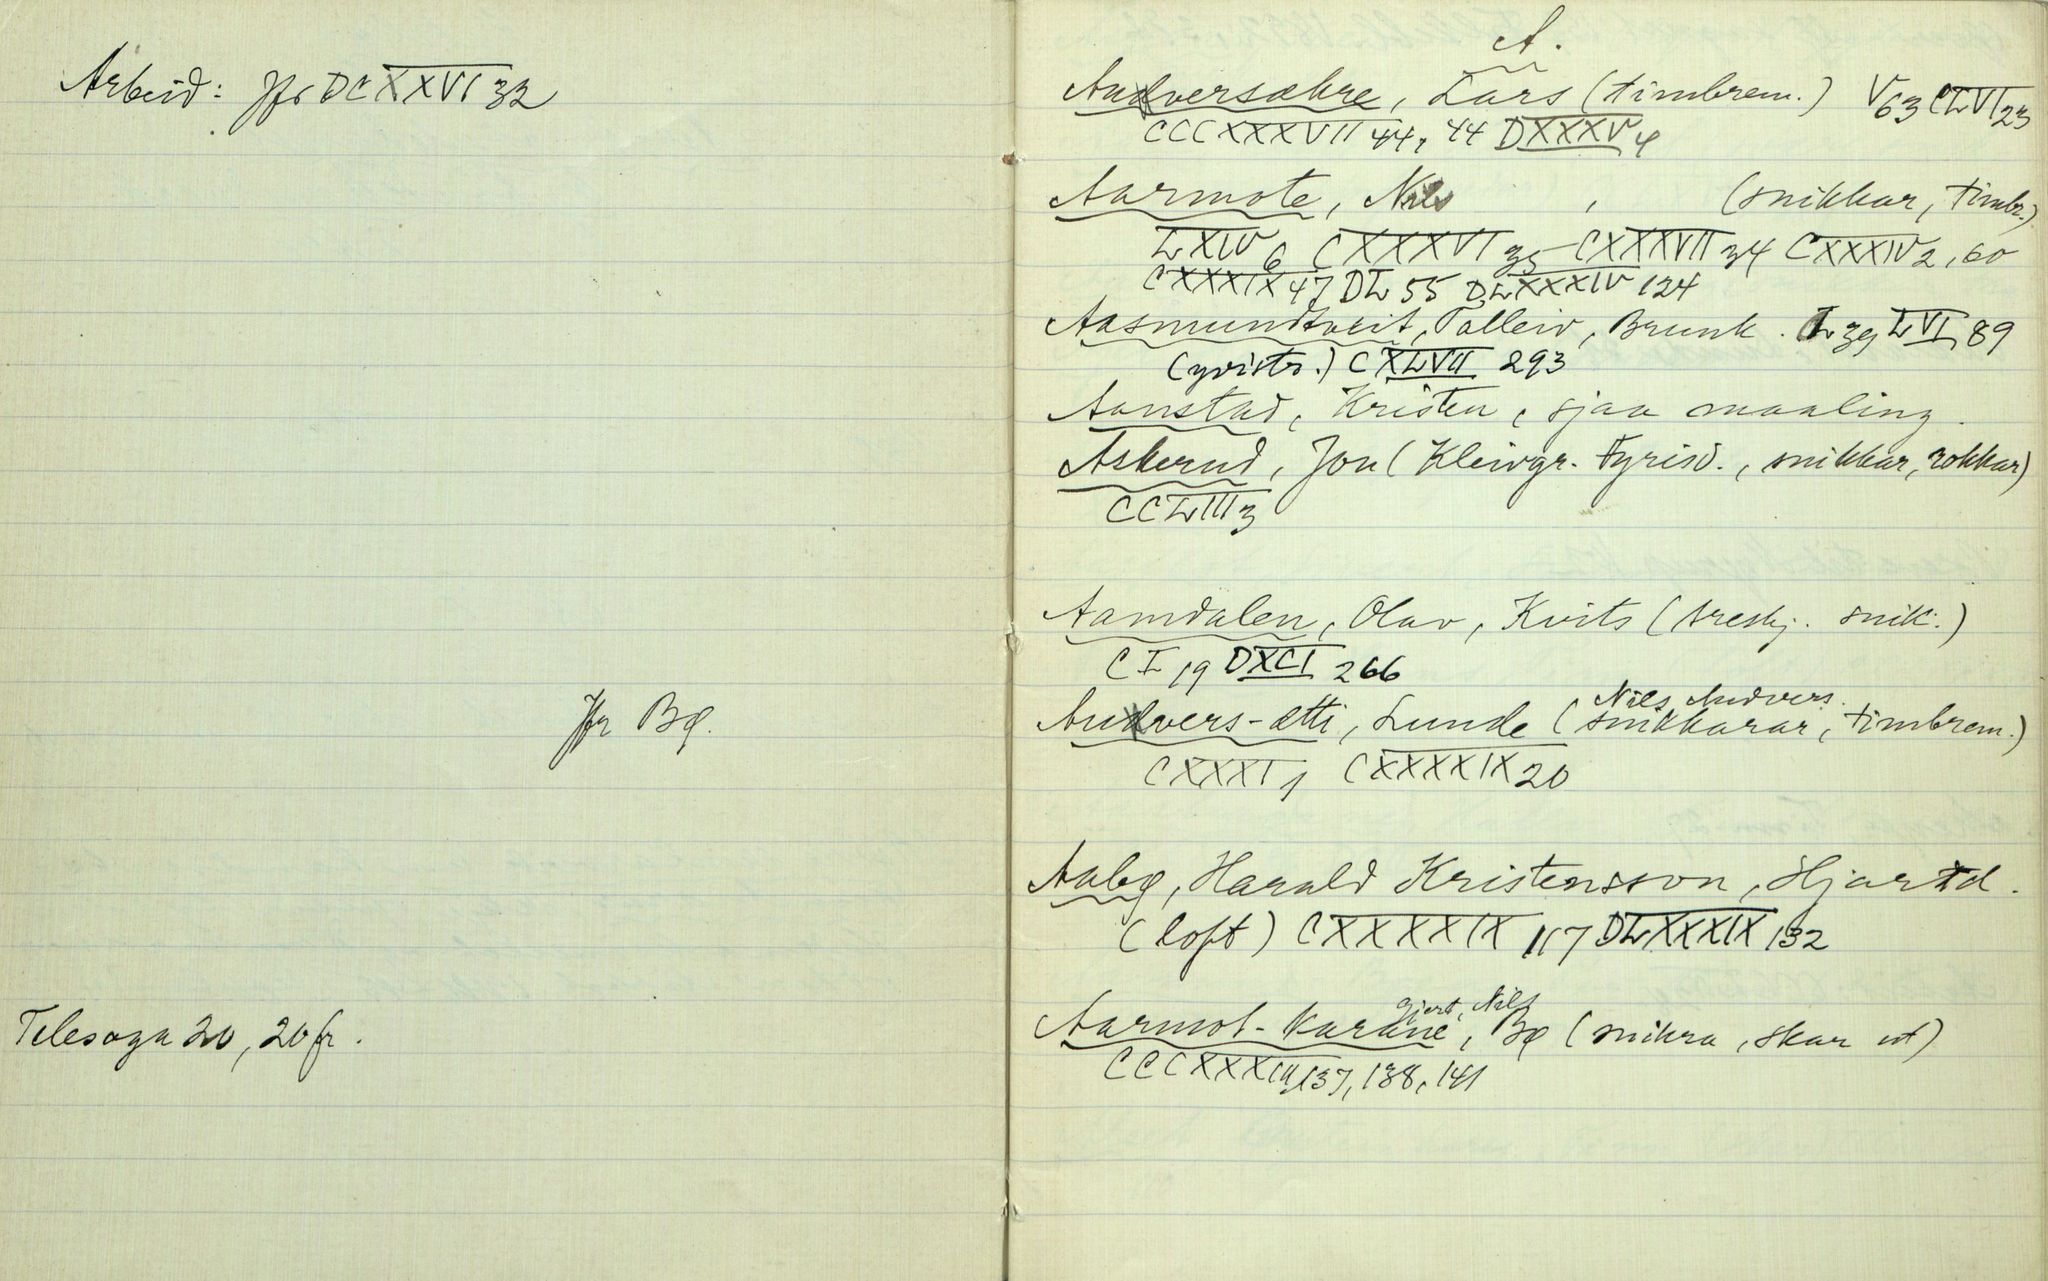 Arbeid: Jfr DCXXVI 32
Jfr Bø.
Telesoga 20, 20 fr.
A.
Andversækre, Lars (timbrem.) V 63 CLVI 23
CCCXXXVII 44, 44 DXXXV 4
Aarmote, Nils , (snikkar, timbr.)
LXIV 6 CXXXVI 35 CXXXVII 34 CXXXIV 2, 60
CXXXIX 47 DL 55 DLXXXIV 124
Aasmundtveit, Talleiv, Brunk. L 39 LVI 89
(gristr.) CXLVII 293
Aanstad, Kristen, sjaa maaling
Askerud, Jon (Kleivgr. Fyrisd., snikkar, rokkar)
CCLIII 3
Aamdalen, Olav, Kvits (treskj. snik.)
CI 19 DXCI 266
Nils Andvers.
Andvers-ætti, Lunde (snikkarar, timbrem.)
CXXXI 1 CXXXXIX 20
Aabø, Harald Kristensson, Hjartd.
(loft) CXXXXIX 117 DLXXXIX 132
Gjert, Nils
Aarmot-karane, Bø (snikra, skar ut)
CCCXXXIII 137, 138, 141